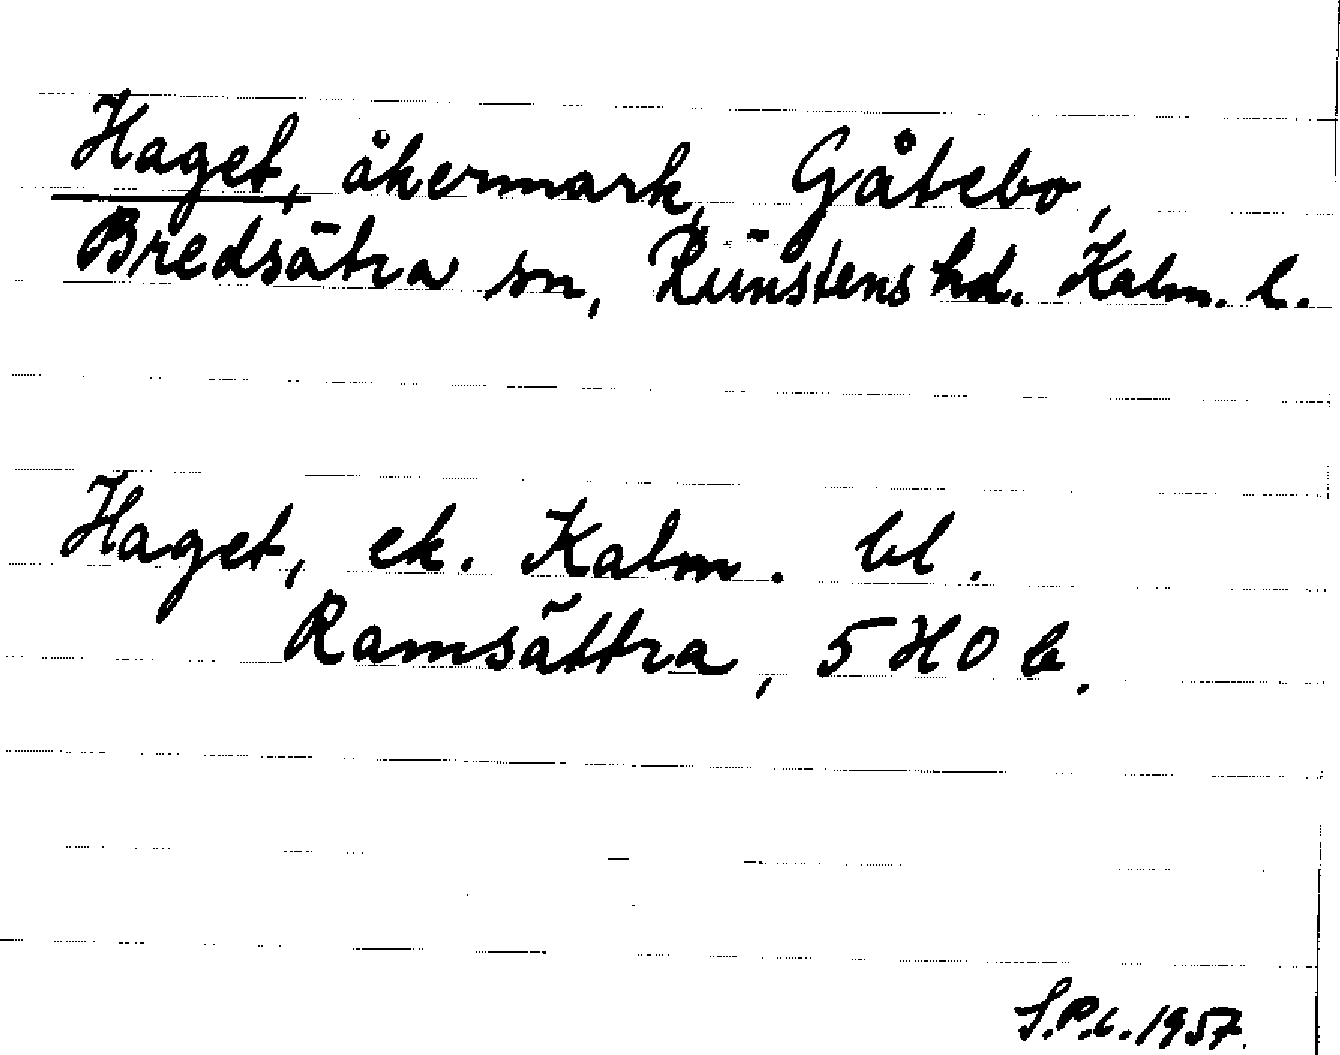 Haget, åkermark, Gåtebo,
Bredsätra sn, Runstens hd. Kalm. l.
Haget, ek. Kalm. bl.
Ramsättra, 5 H 0 b.
S.P.L. 1957.